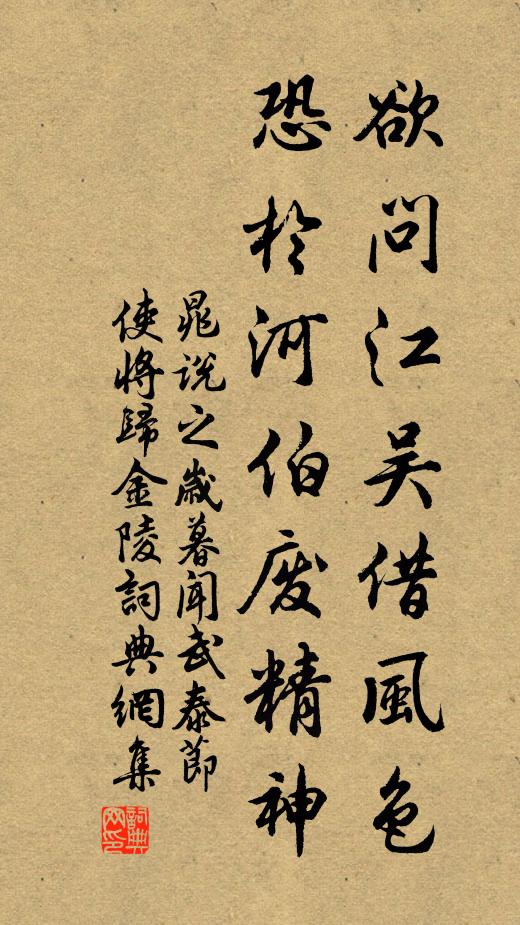 欲問江吴借風色
恐於河伯废精神
晁説之歲暮聞武泰節
使將歸金陵詞典網集
詞典
网印